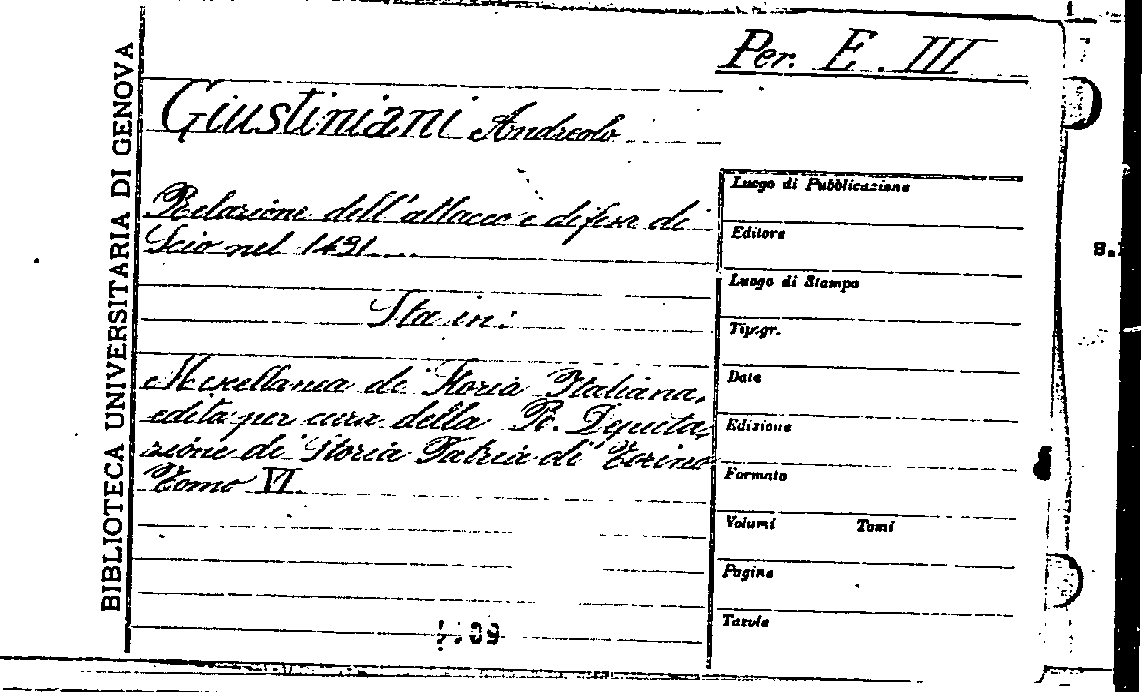 Per. E. III
BIBLIOTECA UNIVERSITARIA DI GENOVA
Giustiniani Andreolo
Relazione dell'attacco e difesa di
Scio nel 1431....
Sta in:
Miscellanea di Storia Italiana,
edita per cura della R. Deputa,
zione di Storia Patria di Torino
Tomo VI.
Luogo di Pubblicazione
Editore
Luogo di Stampa
Tip.gr.
Data
Edizione
Formato
Volumi Tomi
Pagine
Tavole